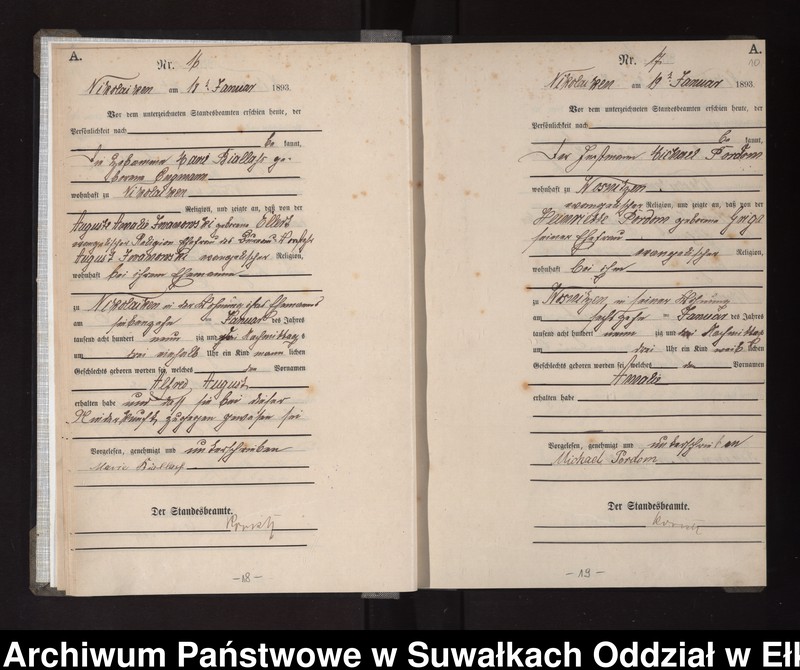 A.
Nr. 16
Nikolaiken am 18ᵗ Januar 1893.
Vor dem unterzeichneten Standesbeamten erschien heute, der
Persönlichkeit nach
be kannt,
die Hebamme
geborene
wohnhaft zu Nikolaiken
Religion, und zeigte an, daß von der
Auguste Amalie Iwanowski geborene Ellert
evangelischer Religion Ehefrau des
August Iwanowski evangelischer Religion,
wohnhaft bei ihrem Ehemanne
zu Nikolaiken in der Wohnung ihres Ehemanns
am siebenzehn ten Januar des Jahres
tausend acht hundert neun zig und drei Nachmittags
um drei einhalb Uhr ein Kind männ lichen
Geschlechts geboren worden sei, welches den Vornamen
Alfred August
erhalten habe und daß sie bei dieser
Niederkunft zugegen gewesen sei
Vorgelesen, genehmigt und unterschrieben
Marie
Der Standesbeamte.
-18-
A.
Nr. 17
Nikolaiken am 19ᵗ Januar 1893.
Vor dem unterzeichneten Standesbeamten erschien heute, der
Persönlichkeit nach
be kannt,
Der Michael Pordom
wohnhaft zu
evangelischer Religion, und zeigte an, daß von der
Henriette Pordom geborene
seiner Ehefrau
evangelischer Religion,
wohnhaft bei ihm
zu in seiner Wohnung
am sechszehn ten Januar des Jahres
tausend acht hundert neun zig und drei Nachmittags
um drei Uhr ein Kind weib lichen
Geschlechts geboren worden sei, welches den Vornamen
Amalie
erhalten habe
Vorgelesen, genehmigt und unterschrieben
Michael Pordom
Der Standesbeamte.
-19-
Archiwum Państwowe w Suwałkach Oddział w Eł